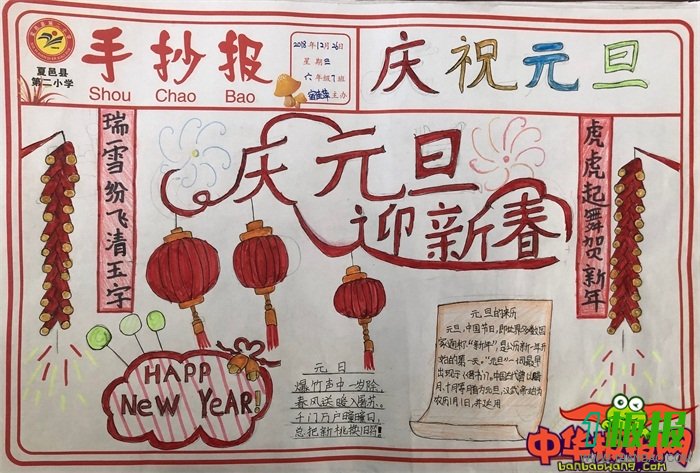 夏邑县
第二小学
手抄报
Shou Chao Bao
2018年12月26日
星期三
六年级7班
主办
庆祝元旦
瑞雪纷飞清玉宇
虎虎起舞贺新年
庆元旦
迎新春
HAPPY
NEW YEAR!
元日
爆竹声中一岁除
春风送暖入屠苏。
千门万户曈曈日,
总把新桃换旧符!
元旦的来历
元旦,中国节日,即世界多数国
家通称"新年",是公历新一年开
始的第一天。"元旦"一词最早
出现于《晋书》,中国古代曾以腊
月、十月等月首为元旦,汉武帝始为
农历1月1日,并延用
快报
中华报网
banbaowang.com